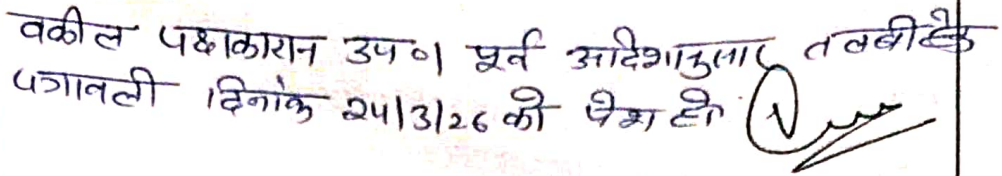 वकील पक्षकारान उप०। पूर्व आदेशानुसार तलबी हेतु
पत्रावली दिनांक 24/3/26 को पेश हो